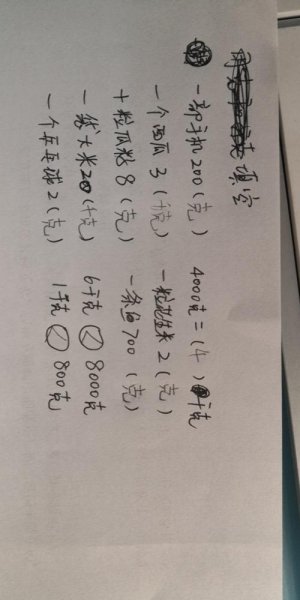 填空
一部手机200(克) 4000克=(4)千克
一个西瓜3(千克) 一粒花生米2(克)
十粒瓜籽8(克) 一条鱼700(克)
一袋大米20(千克) 6千克>8000克
一个乒乓球2(克) 1千克>800克